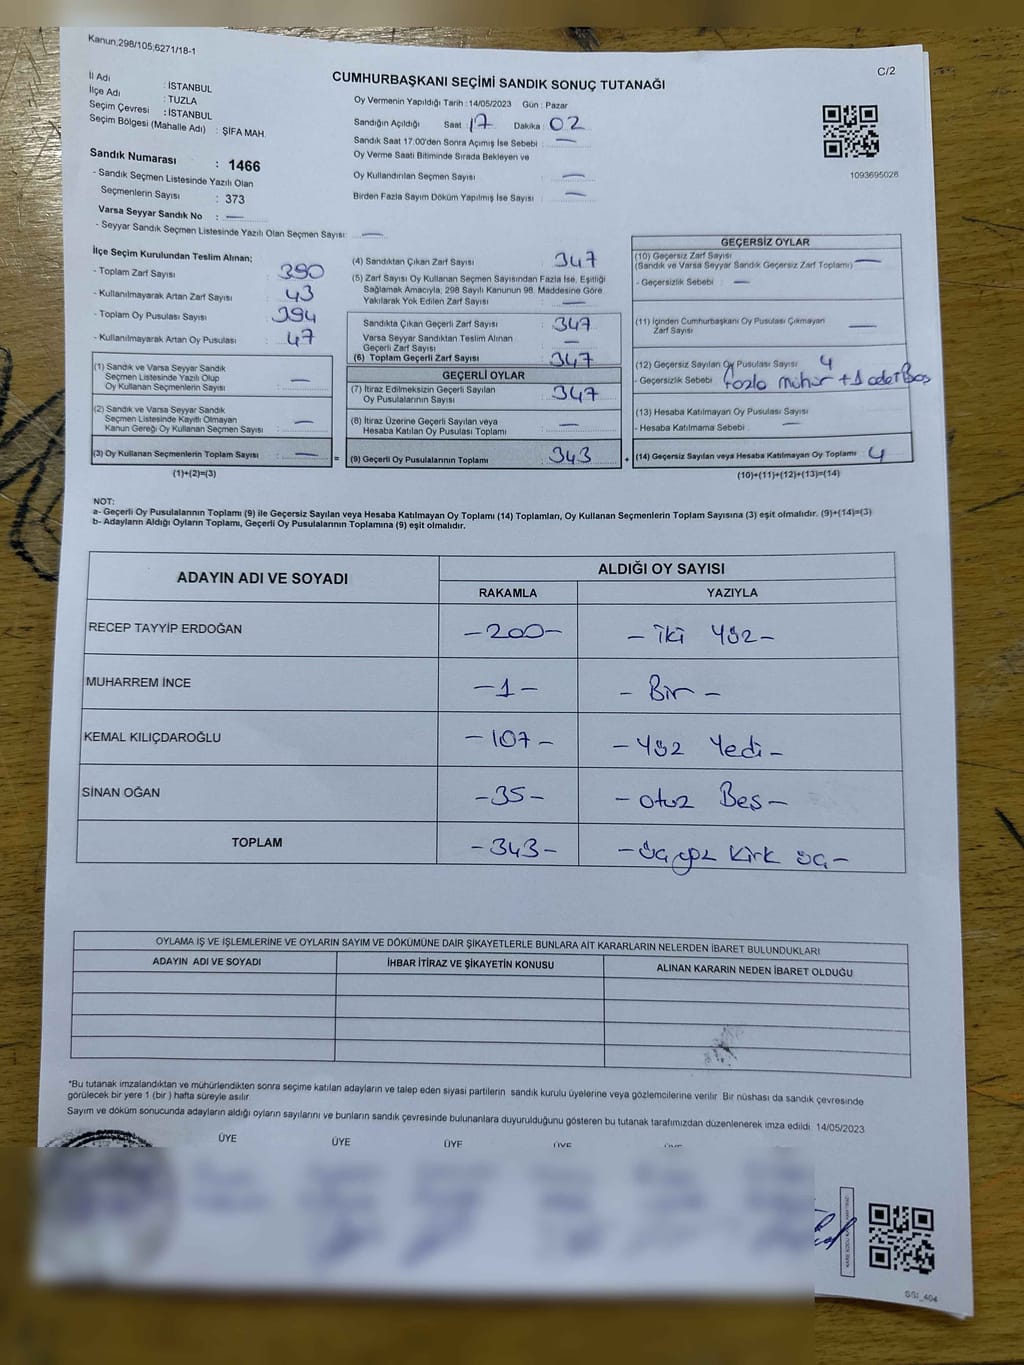 Kanun,298/105;6271/18-1
C/2
CUMHURBAŞKANI SEÇİMİ SANDIK SONUÇ TUTANAĞI
İl Adı : İSTANBUL
İlçe Adı : TUZLA
Seçim Çevresi : İSTANBUL
Seçim Bölgesi (Mahalle Adı) : ŞİFA MAH.
Sandık Numarası : 1466
- Sandık Seçmen Listesinde Yazılı Olan
Seçmenlerin Sayısı : 373
Varsa Seyyar Sandık No : —
- Seyyar Sandık Seçmen Listesinde Yazılı Olan Seçmen Sayısı: —
Oy Vermenin Yapıldığı Tarih :14/05/2023 Gün : Pazar
Sandığın Açıldığı Saat : 17 Dakika : 02
Sandık Saat 17:00'den Sonra Açımış İse Sebebi : —
Oy Verme Saati Bitiminde Sırada Bekleyen ve
Oy Kullandırılan Seçmen Sayısı : —
Birden Fazla Sayım Döküm Yapılmış İse Sayısı : —
1093695028
İlçe Seçim Kurulundan Teslim Alınan;
- Toplam Zarf Sayısı : 390
- Kullanılmayarak Artan Zarf Sayısı : 43
- Toplam Oy Pusulası Sayısı : 394
- Kullanılmayarak Artan Oy Pusulası : 47
(1) Sandık ve Varsa Seyyar Sandık
Seçmen Listesinde Yazılı Olup
Oy Kullanan Seçmenlerin Sayısı : —
(2) Sandık ve Varsa Seyyar Sandık
Seçmen Listesinde Kayıtlı Olmayan
Kanun Gereği Oy Kullanan Seçmen Sayısı : —
(3) Oy Kullanan Seçmenlerin Toplam Sayısı : —
(1)+(2)=(3)
=
(4) Sandıktan Çıkan Zarf Sayısı : 347
(5) Zarf Sayısı Oy Kullanan Seçmen Sayısından Fazla İse, Eşitliği
Sağlamak Amacıyla, 298 Sayılı Kanunun 98. Maddesine Göre
Yakılarak Yok Edilen Zarf Sayısı : —
Sandıkta Çıkan Geçerli Zarf Sayısı : 347
Varsa Seyyar Sandıktan Teslim Alınan
Geçerli Zarf Sayısı : —
(6) Toplam Geçerli Zarf Sayısı : 347
GEÇERLİ OYLAR
(7) İtiraz Edilmeksizin Geçerli Sayılan
Oy Pusulalarının Sayısı : 347
(8) İtiraz Üzerine Geçerli Sayılan veya
Hesaba Katılan Oy Pusulası Toplamı : —
(9) Geçerli Oy Pusulalarının Toplamı : 343
+
GEÇERSİZ OYLAR
(10) Geçersiz Zarf Sayısı
(Sandık ve Varsa Seyyar Sandık Geçersiz Zarf Toplamı) : —
- Geçersizlik Sebebi : —
(11) İçinden Cumhurbaşkanı Oy Pusulası Çıkmayan
Zarf Sayısı : —
(12) Geçersiz Sayılan Oy Pusulası Sayısı : 4
- Geçersizlik Sebebi : fazla mühür +1 adet Boş
(13) Hesaba Katılmayan Oy Pusulası Sayısı :
- Hesaba Katılmama Sebebi : —
(14) Geçersiz Sayılan veya Hesaba Katılmayan Oy Toplamı : 4
(10)+(11)+(12)+(13)=(14)
NOT:
a- Geçerli Oy Pusulalarının Toplamı (9) ile Geçersiz Sayılan veya Hesaba Katılmayan Oy Toplamı (14) Toplamları, Oy Kullanan Seçmenlerin Toplam Sayısına (3) eşit olmalıdır. (9)+(14)=(3)
b- Adayların Aldığı Oyların Toplamı, Geçerli Oy Pusulalarının Toplamına (9) eşit olmalıdır.
ADAYIN ADI VE SOYADI
ALDIĞI OY SAYISI
RAKAMLA YAZIYLA
RECEP TAYYİP ERDOĞAN -200- - iki yüz -
MUHARREM İNCE -1- - Bir -
KEMAL KILIÇDAROĞLU -107- - Yüz Yedi -
SİNAN OĞAN -35- - otuz Beş -
TOPLAM -343- - üçyüz Kırk üç -
OYLAMA İŞ VE İŞLEMLERİNE VE OYLARIN SAYIM VE DÖKÜMÜNE DAİR ŞİKAYETLERLE BUNLARA AİT KARARLARIN NELERDEN İBARET BULUNDUKLARI
ADAYIN ADI VE SOYADI İHBAR İTİRAZ VE ŞİKAYETİN KONUSU ALINAN KARARIN NEDEN İBARET OLDUĞU
*Bu tutanak imzalandıktan ve mühürlendikten sonra seçime katılan adayların ve talep eden siyasi partilerin sandık kurulu üyelerine veya gözlemcilerine verilir. Bir nüshası da sandık çevresinde
görülecek bir yere 1 (bir ) hafta süreyle asılır.
Sayım ve döküm sonucunda adayların aldığı oyların sayılarını ve bunların sandık çevresinde bulunanlara duyurulduğunu gösteren bu tutanak tarafımızdan düzenlenerek imza edildi. 14/05/2023
ÜYE ÜYE ÜYE ÜYE ÜYE